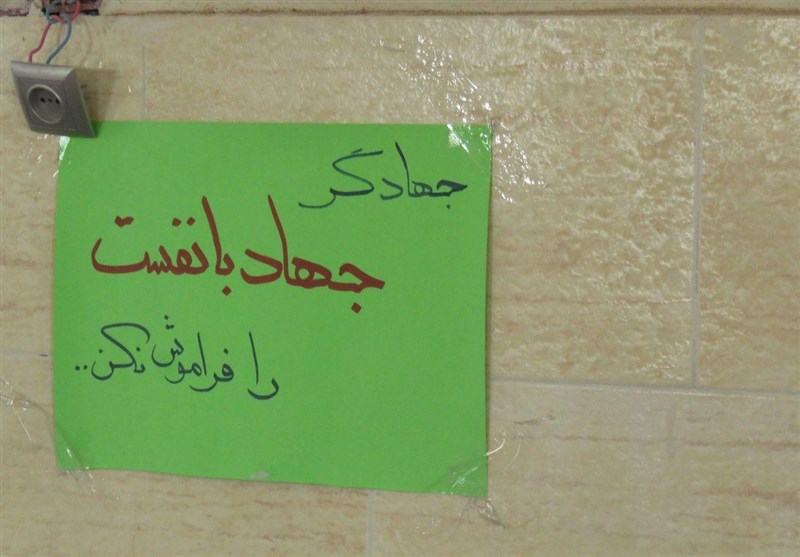 جهادگر
جهاد با نفست
را فراموش نکن..